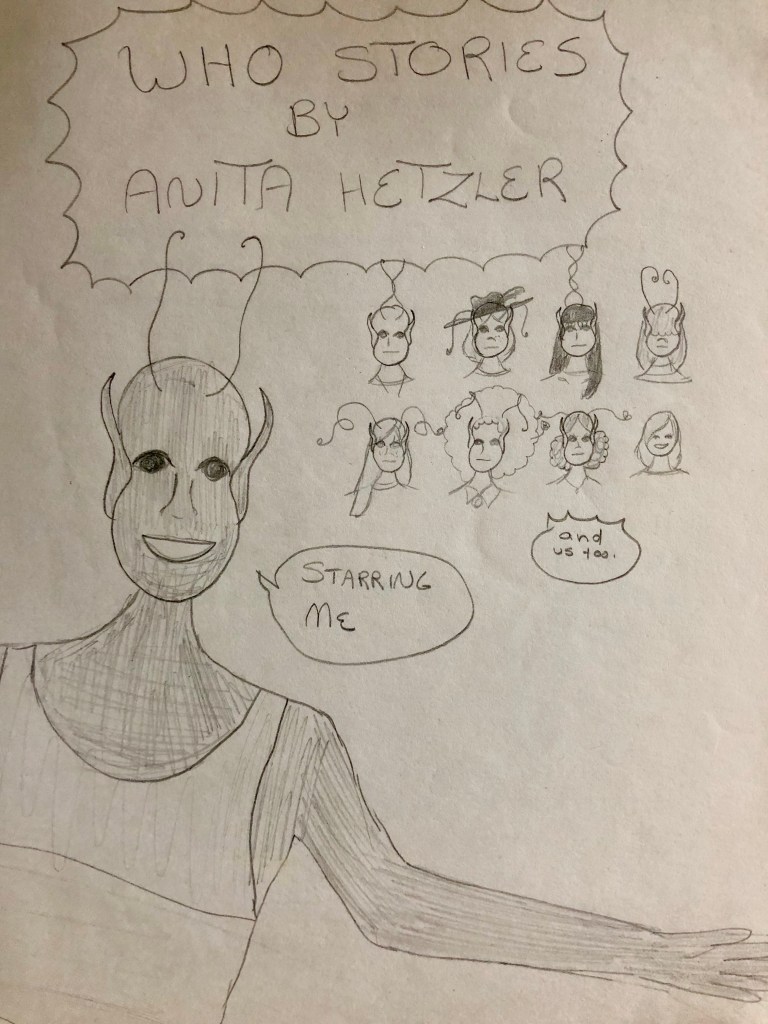 WHO STORIES
BY
ANITA HETZLER
and
us too.
STARRING
ME